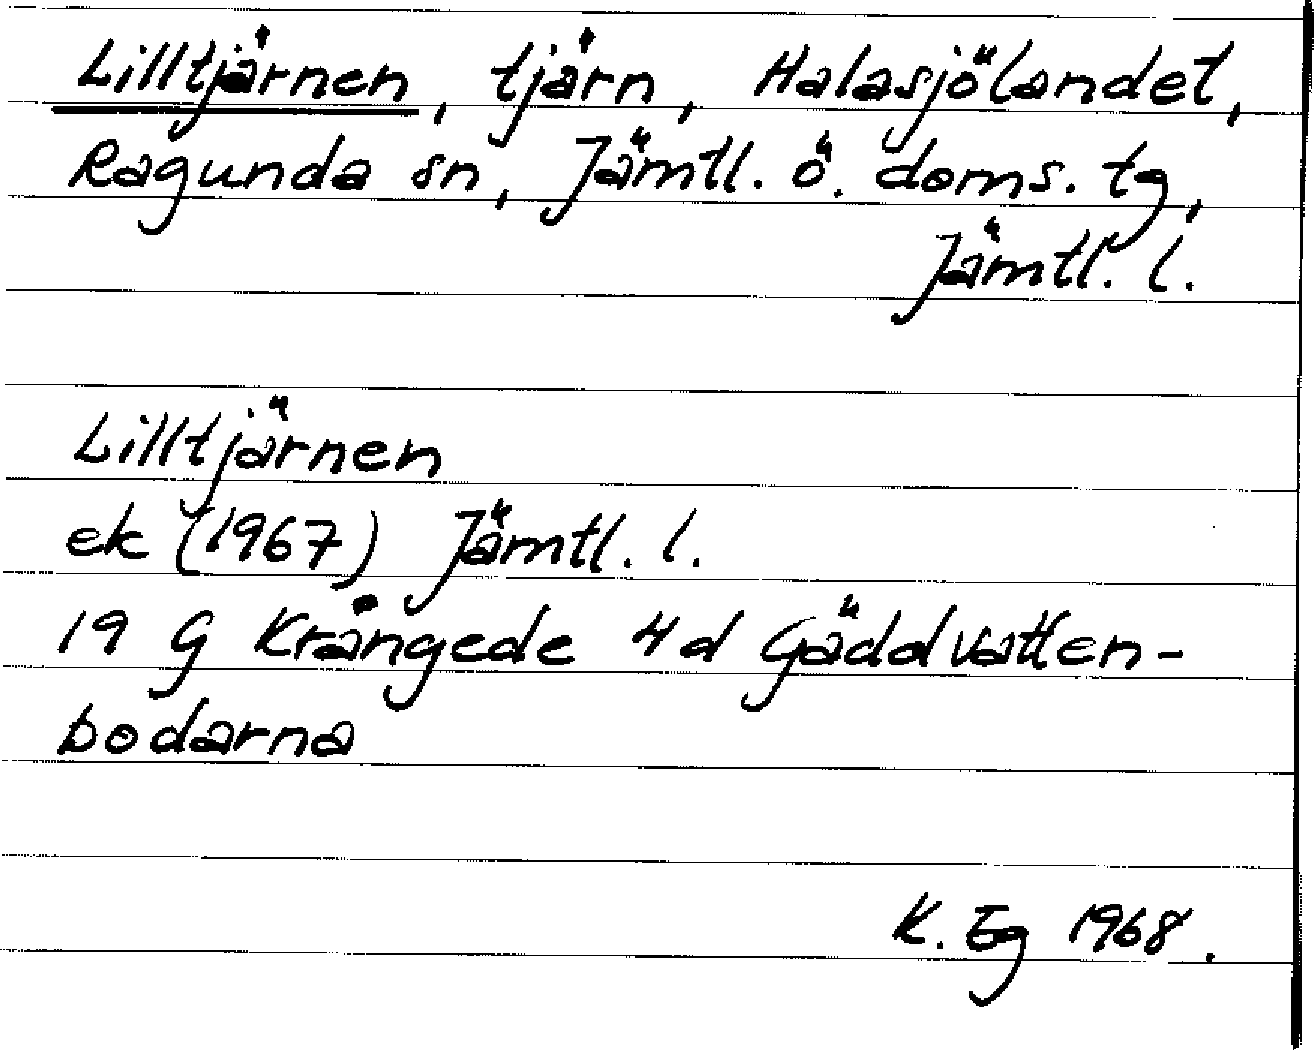 Lilltjärnen, tjärn, Halasjölandet,
Ragunda sn, Jämtl. ö. doms. tg,
Jämtl. l.
Lilltjärnen
ek (1967) Jämtl. l.
19 G Krångede 4d Gäddvatten-
bodarna
K. Eg 1968.